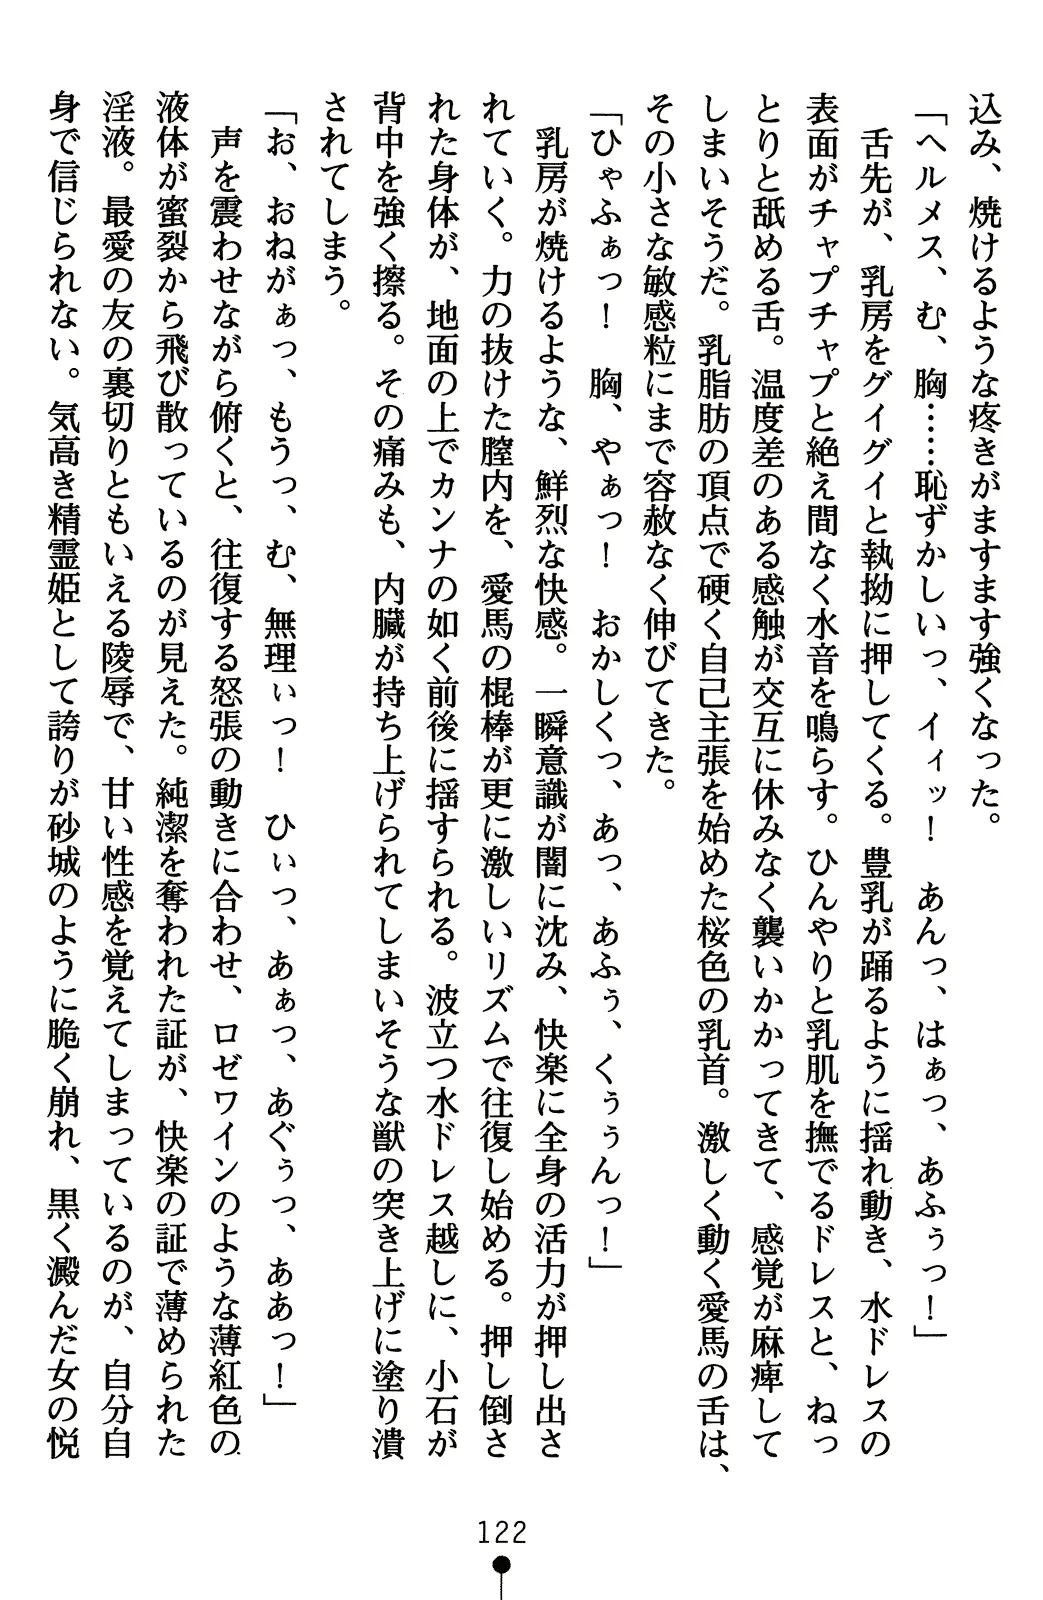 込み、焼けるような疼きがますます強くなった。
「ヘルメス、む、胸……恥ずかしいっ、イィッ！　あんっ、はぁっ、あふぅっ！」
　舌先が、乳房をグイグイと執拗に押してくる。豊乳が踊るように揺れ動き、水ドレスの
表面がチャプチャプと絶え間なく水音を鳴らす。ひんやりと乳肌を撫でるドレスと、ねっ
とりと舐める舌。温度差のある感触が交互に休みなく襲いかかってきて、感覚が麻痺して
しまいそうだ。乳脂肪の頂点で硬く自己主張を始めた桜色の乳首。激しく動く愛馬の舌は、
その小さな敏感粒にまで容赦なく伸びてきた。
「ひゃふぁっ！　胸、やぁっ！　おかしくっ、あっ、あふぅ、くぅぅんっ！」
　乳房が焼けるような、鮮烈な快感。一瞬意識が闇に沈み、快楽に全身の活力が押し出さ
れていく。力の抜けた膣内を、愛馬の棍棒が更に激しいリズムで往復し始める。押し倒さ
れた身体が、地面の上でカンナの如く前後に揺すられる。波立つ水ドレス越しに、小石が
背中を強く擦る。その痛みも、内臓が持ち上げられてしまいそうな獣の突き上げに塗り潰
されてしまう。
「お、おねがぁっ、もうっ、む、無理ぃっ！　ひぃっ、あぁっ、あぐぅっ、ああっ！」
　声を震わせながら俯くと、往復する怒張の動きに合わせ、ロゼワインのような薄紅色の
液体が蜜裂から飛び散っているのが見えた。純潔を奪われた証が、快楽の証で薄められた
淫液。最愛の友の裏切りともいえる陵辱で、甘い性感を覚えてしまっているのが、自分自
身で信じられない。気高き精霊姫として誇りが砂城のように脆く崩れ、黒く澱んだ女の悦
122